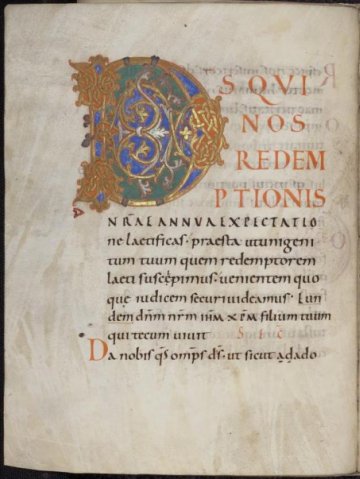 DS QVI
NOS
REDEM
PTIONIS
NRAE ANNVA EXPECTATIO
ne laetificas· praesta ut unigeni
tum tuum quem redemptorem
laeti suscepimus· uenientem quo
que iudicem securi uideamus· Eun
dem dnm nrm ihm xpm filium tuum
qui tecum uiuit SIC
Da nobis qs omps ds· ut sicut adado